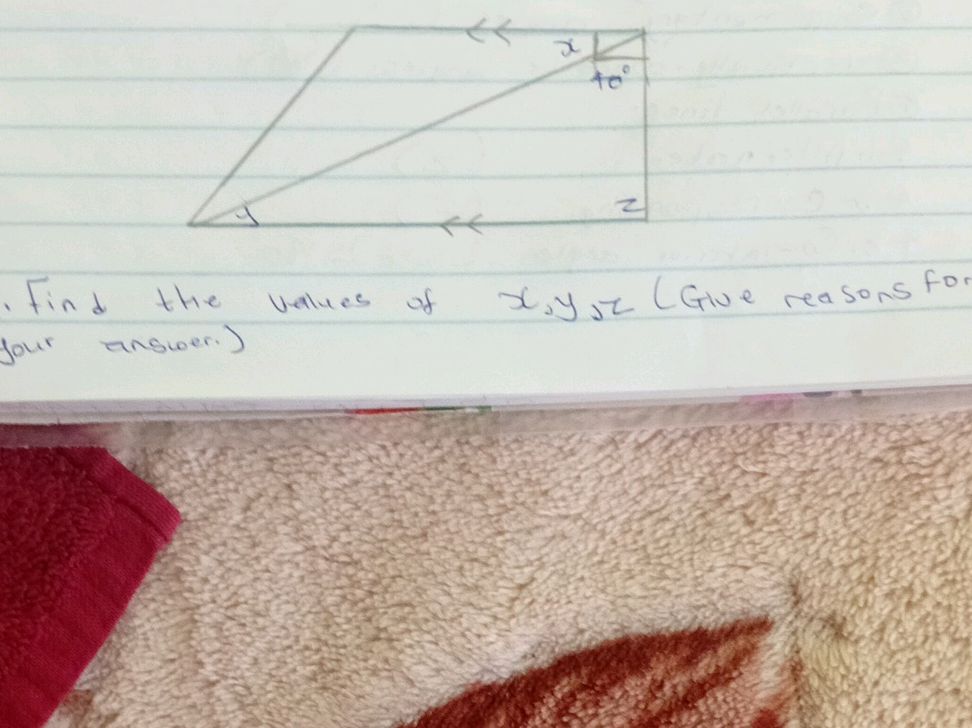 x
40°
y
z
. Find the values of x, y, z (Give reasons for
your answer.)